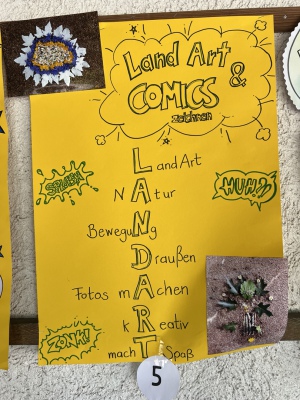 Land Art
&
COMICS
zeichnen
SPLASH
HUH??
LandArt
NAtur
BeweguNg
Draußen
Fotos mAchen
kReativ
machT Spaß
ZONK!
5